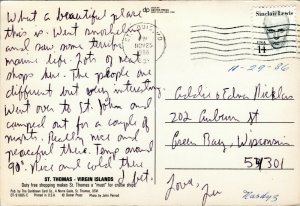 What a beautiful place
this is. Went snorkeling
and saw some terrific
marine life. Lots of neat
shops here. The people are
different but very interesting.
Went over to St. John and
camped out for a couple of
nights. Really nice and
peaceful there. Temp around
90°. Nice and cold there
I bet.
ST. THOMAS - VIRGIN ISLANDS
Duty free shopping makes St. Thomas a "must" for cruise ships.
NOV 25
Sinclair Lewis
USA 14
11-29-86
Addie & Edna Nicklas
202 Auburn St
Green Bay, Wisconsin
54301
Love,